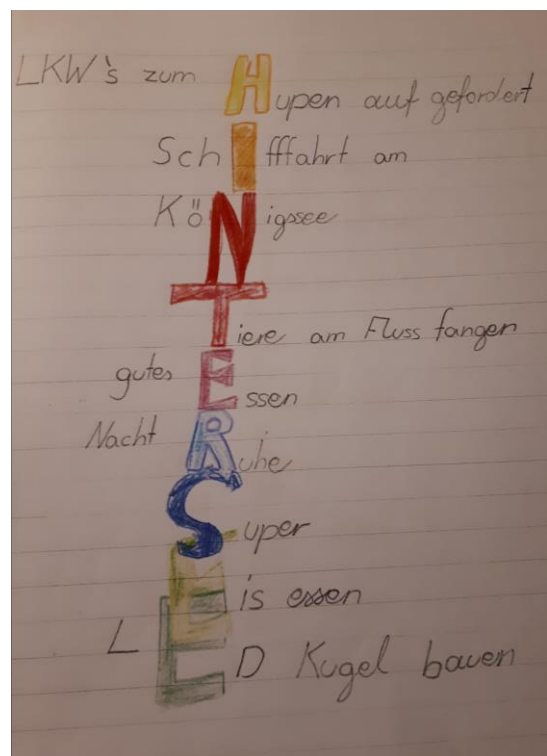 LKW's zum Hupen auf gefordert
Schifffahrt am
Königssee
Tiere am Fluss fangen
gutes Essen
Nacht Ruhe
Super
Eis essen
LED Kugel bauen